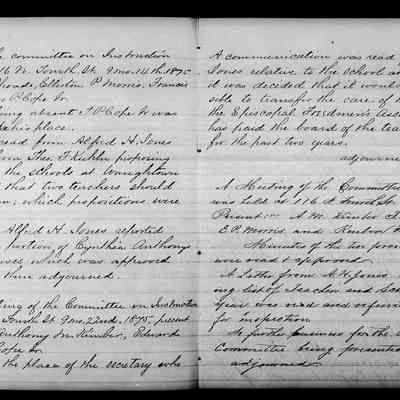 committee on Instruction
16 N. Fourth St. 9mo. 14th 1875
Rhoads, Elliston P. Morris, Francis
P. Cope Jr.
being absent T. P. Cope Jr. was
his place.
read from Alfred H. Jones
from Theo. F. Kuhler proposing
the schools at Waughtown
that two teachers should
which propositions were
Alfred H. Jones reported
portion of Cynthia Anthony's
which was approved
then adjourned.
Meeting of the Committee on Instruction
Fourth St. 9mo. 22nd, 1875, present
Anthony M. Kimber, Edward
Cope Jr.
the place of the secretary who
A communication was read
Jones relative to the school at
it was decided that it would
sible to transfer the care of
the Episcopal Freedmen's Asso
has paid the board of the tea
for the past two years.
adjourned
A Meeting of the Committee
was held at 116 N. Fourth St.
Present A. M. Kimber
E. P. Morris and
Minutes of the two previous
were read & approved.
A Letter from A. H. Jones
ing list of Teachers and
year was read and referred
for inspection
No further business for the
Committee being presented
adjourned